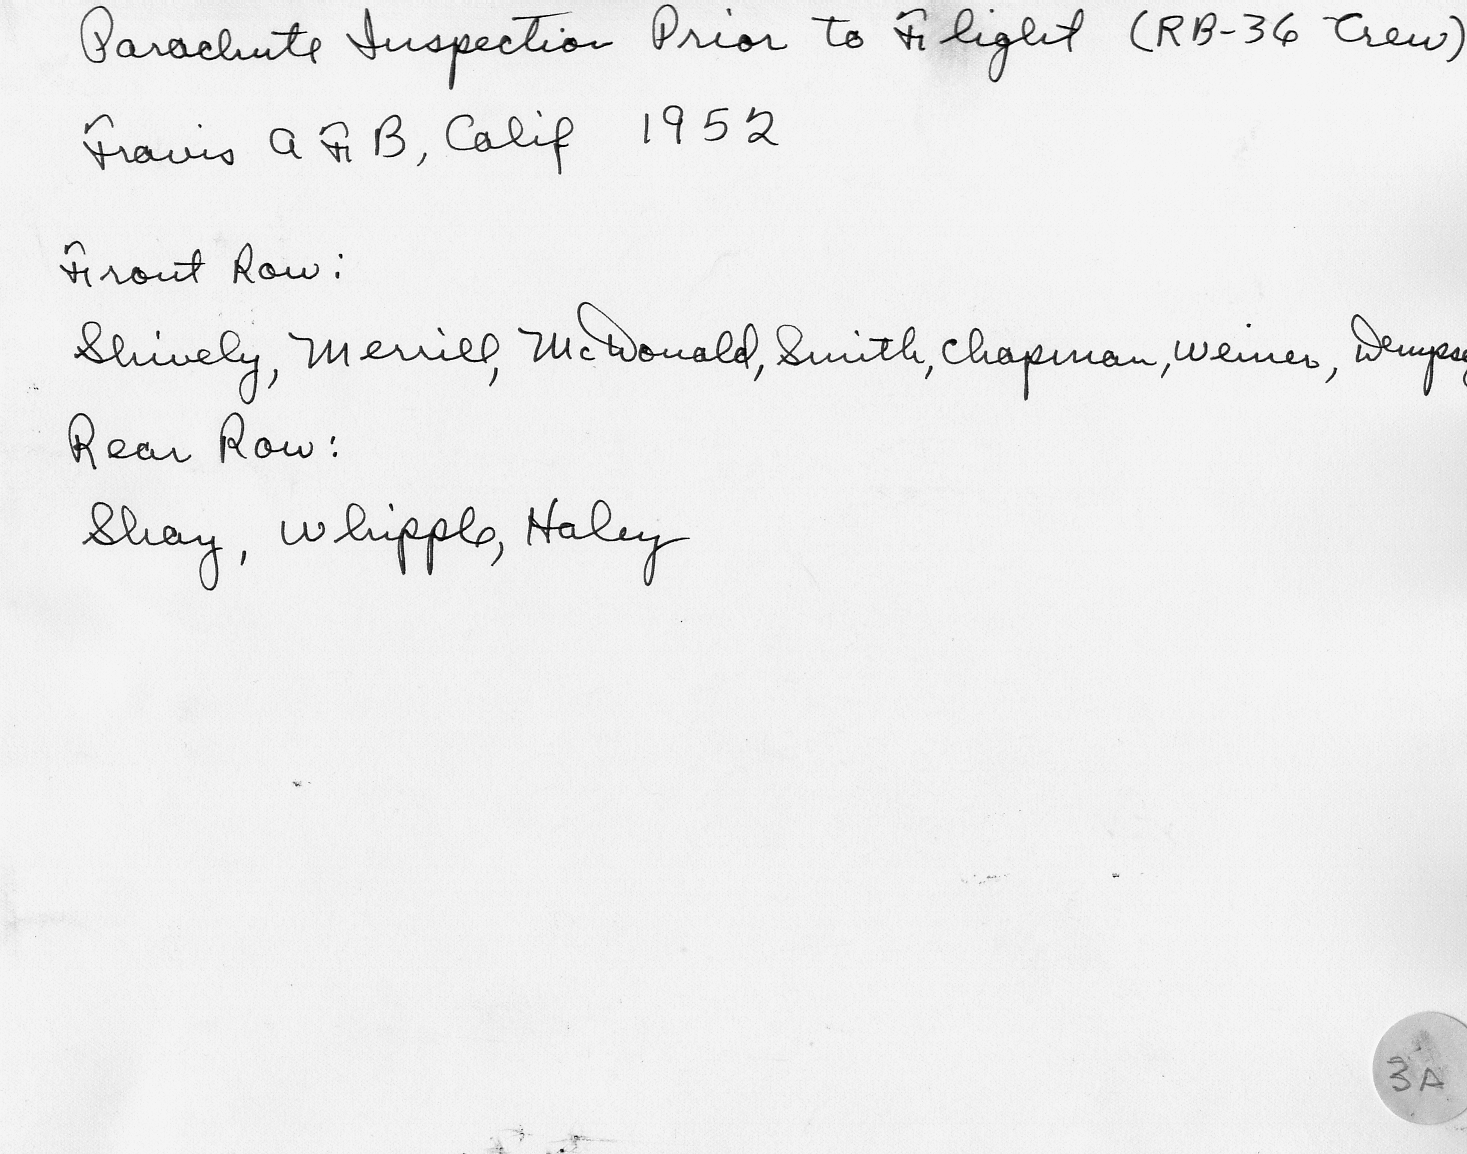 Parachute Inspection Prior to Flight (RB-36 Crew)
Travis AFB, Calif 1952
Front Row:
Shively, Merrill, McDonald, Smith, Chapman, Weiner, Dempsey
Rear Row:
Shay, Whipple, Haley
3A